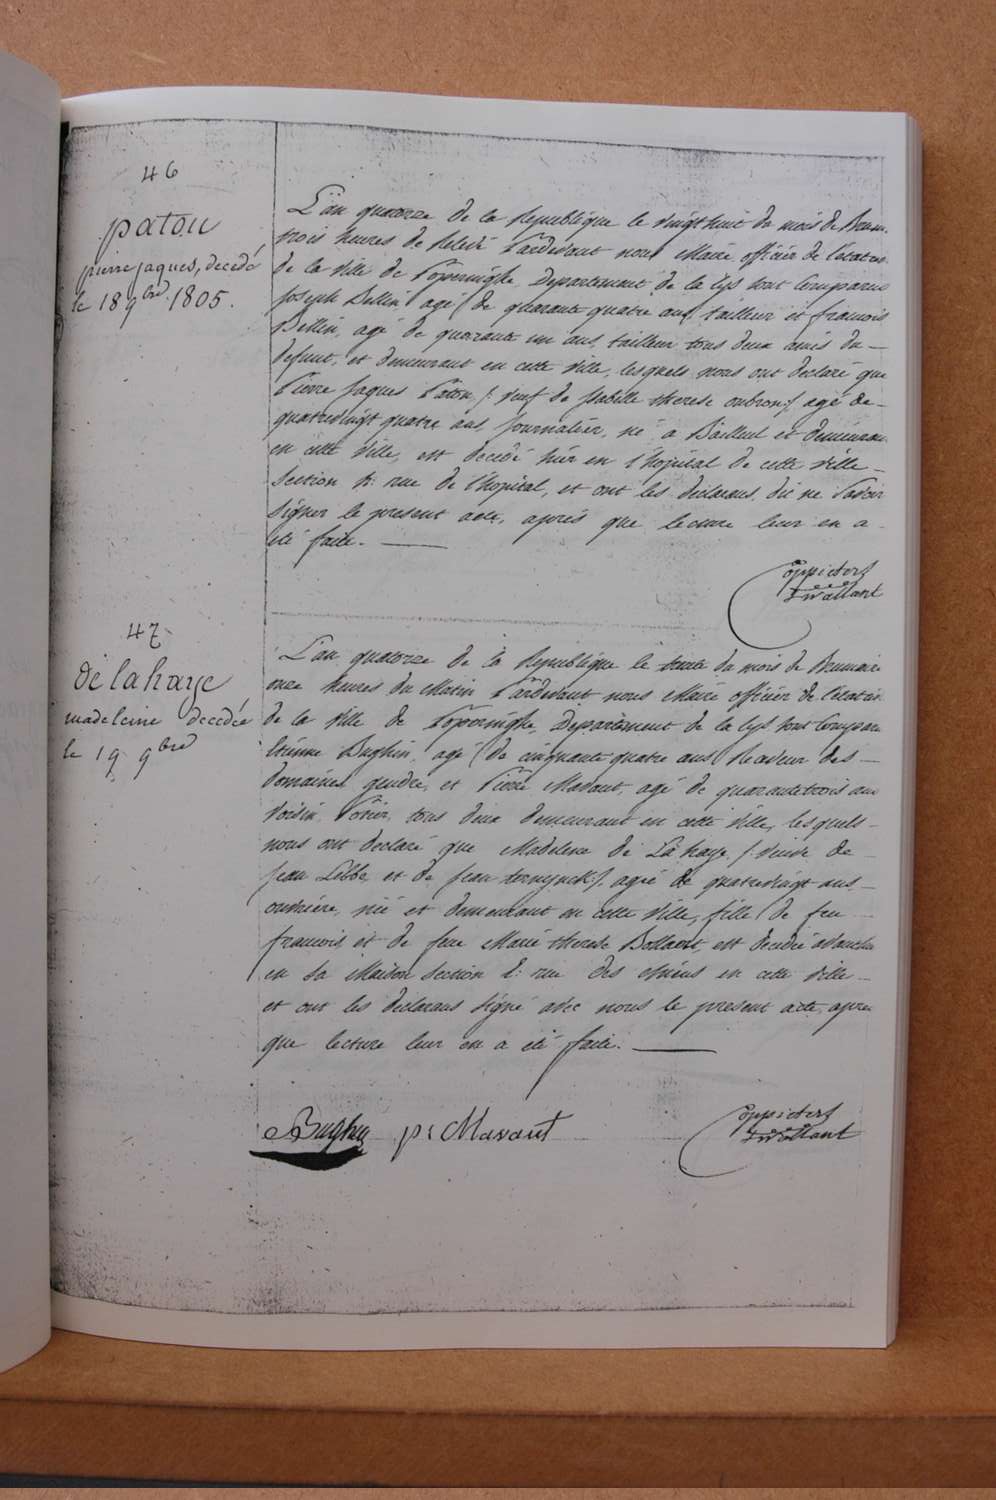 46
paton
pierre jaques, decedé
le 18 9bre 1805.
L'an quatorze de la Republique le vingt huit du mois de Brum.
trois heures de Relevé Pardevant nous Maire officier de l'etat civ
de la Ville de Poperinghe, Departement de la Lys sont Comparus
Joseph Bellin agé de quarante quatre ans tailleur et francois
Bellin, agé de quarante un ans, tailleur tous deux amis du
defunt, et demeurant en cette Ville, lesquels nous ont declaré que
Pierre Jaques Paton /: veuf de Isabelle therese oubron :/ agé de
quatrevingt quatre ans Journalier, né a Bailleul et demeuran
en cette Ville, est decedé hier en l'hopital de cette Ville
Section h: rue de l'hopital, et ont les declarans dit ne savoir
signer le present acte, aprés que lecture leur en a
été faite.
Coppieters
Twallant
47
de la haye
madeleine decedée
le 19 9bre
L'an quatorze de la Republique le trente du mois de Brumair
onze heures du Matin Pardevant nous Maire officier de l'etat civ
de la Ville de Poperinghe, Departement de la Lys sont Compar
Etienne Bughin, agé de cinquante quatre ans Receveur des
domaines, gendre, et Pierre Mavaut, agé de quarante trois ans
Voisin, Potier, tous deux demeurant en cette Ville, lesquels
nous ont declaré que Madelene de La haye /: Veuve de
Jean Lebbe et de Jean ternynck :/ agée de quatrevingt ans
ouvriére, née et demeurant en cette Ville, fille de feu
francois et de feue Marie therese Bollaert, est decedée
en sa Maison Section E: rue des chiens en cette Ville
et ont les declarans signé avec nous le present acte, apres
que lecture leur en a été faite.
Bughin p: Mavaut
Coppieters
Twallant